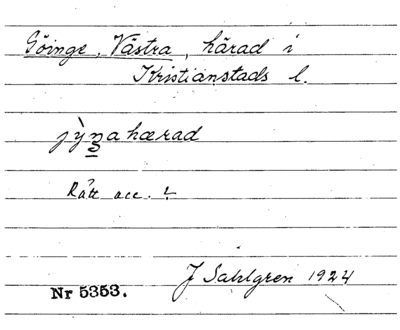 Göinge, Västra, härad i
Kristianstads l.
jỳŋahærad
Rätt acc. ?
J Sahlgren 1924
Nr 5353.